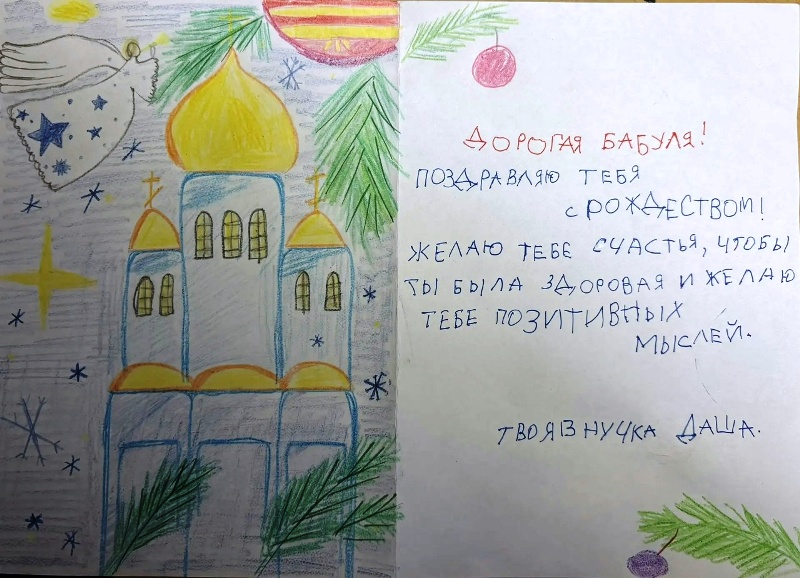 ДОРОГАЯ БАБУЛЯ!
ПОЗДРАВЛЯЮ ТЕБЯ
с РОЖДЕСТВОМ!
ЖЕЛАЮ ТЕБЕ СЧАСТЬЯ, ЧТОБЫ
ТЫ БЫЛА ЗДОРОВАЯ И ЖЕЛАЮ
ТЕБЕ ПОЗИТИВНЫХ
МЫСЛЕЙ.
ТВОЯ ВНУЧКА ДАША.